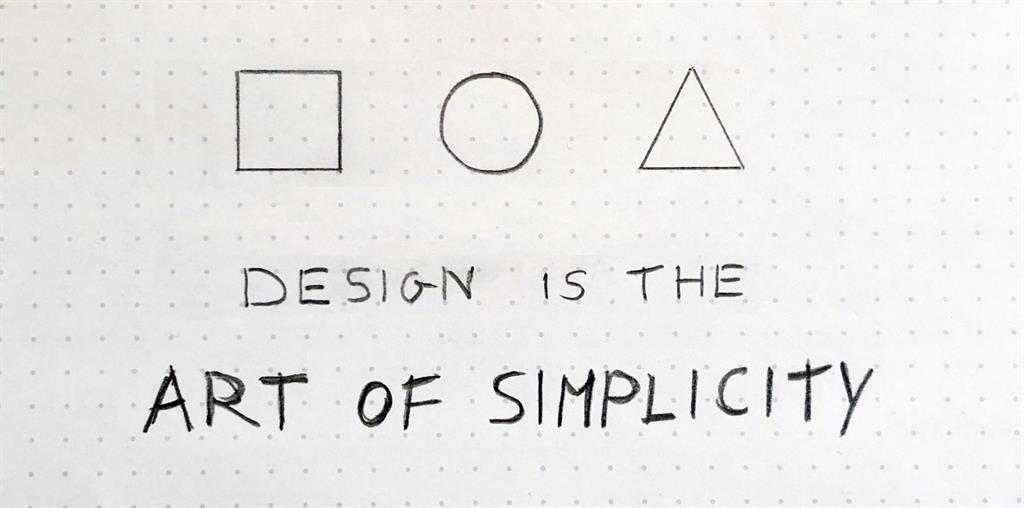 DESIGN IS THE
ART OF SIMPLICITY